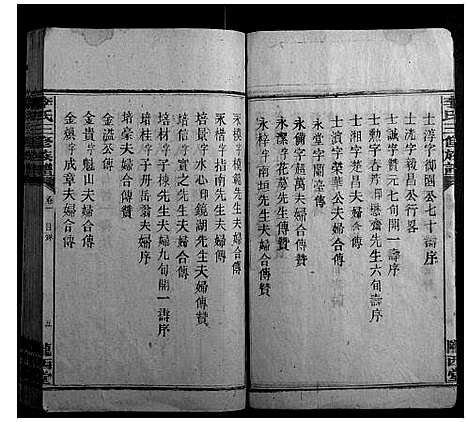 李氏三修族譜
隴西堂
士淳字御國公七十壽序
士洸字毅昌公行畧
士誠字贊元七旬開一壽序
士勲字春芹懋齋先生六旬壽序
士湘字楚昌夫婦合傳
士濱字榮華公夫婦合傳
永堂字蘭臺傳
永備字超萬夫婦合傳贊
永潔字花菱先生傳贊
永梓字南垣先生夫婦合傳贊
永模字模範先生夫婦合傳贊
永楷字指南先生夫婦合傳
培景字水心鏡湖先生夫婦傳贊
培信字實之先生夫婦合傳
培材字子棟先生夫婦九旬開一壽序
培桂字子丹岳翁夫婦序
培豪夫婦合傳贊
金溢公傳
金貴字魁山夫婦合傳
金聲字成章夫婦合傳
李氏三修族譜
卷一
目錄
五
隴西堂